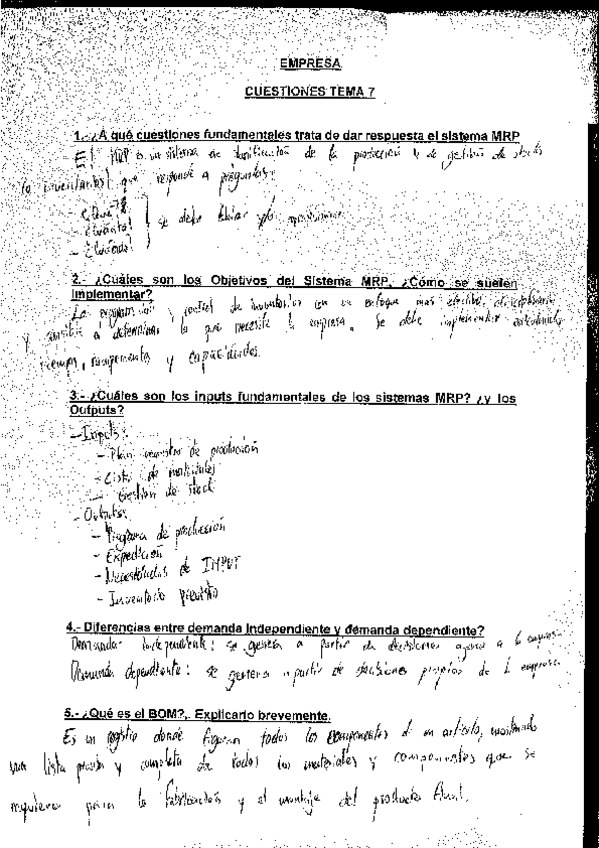 EMPRESA
CUESTIONES TEMA 7
1.- ¿A qué cuestiones fundamentales trata de dar respuesta el sistema MRP
El MRP es un sistema de planificación de la producción y de gestión de stocks
(o inventarios) que responde a preguntas:
- ¿Qué?
- ¿Cuánto?
- ¿Cuándo?
se debe fabricar y/o aprovisionar
2.- ¿Cuáles son los Objetivos del Sistema MRP, ¿Cómo se suelen
implementar?
La organización y control de inventarios con un enfoque más efectivo, disciplinado
y sensible a determinar lo que necesita la empresa. Se debe implementar
tiempos, componentes y capacidades.
3.- ¿Cuáles son los inputs fundamentales de los sistemas MRP? ¿y los
Outputs?
- Inputs:
- Plan maestro de producción
- Lista de materiales
- Gestión de stock
- Outputs:
- Programa de producción
- Expedición
- Necesidades de INPUT
- Inventario previsto
4.- Diferencias entre demanda Independiente y demanda dependiente?
Demanda independiente: se genera a partir de decisiones ajenas a la empresa
Demanda dependiente: se genera a partir de decisiones propias de la empresa.
5.- ¿Qué es el BOM?,. Explicarlo brevemente.
Es un registro donde figuran todos los componentes de un artículo, mostrando
una lista precisa y completa de todos los materiales y componentes que se
requieren para la fabricación y el montaje del producto final.